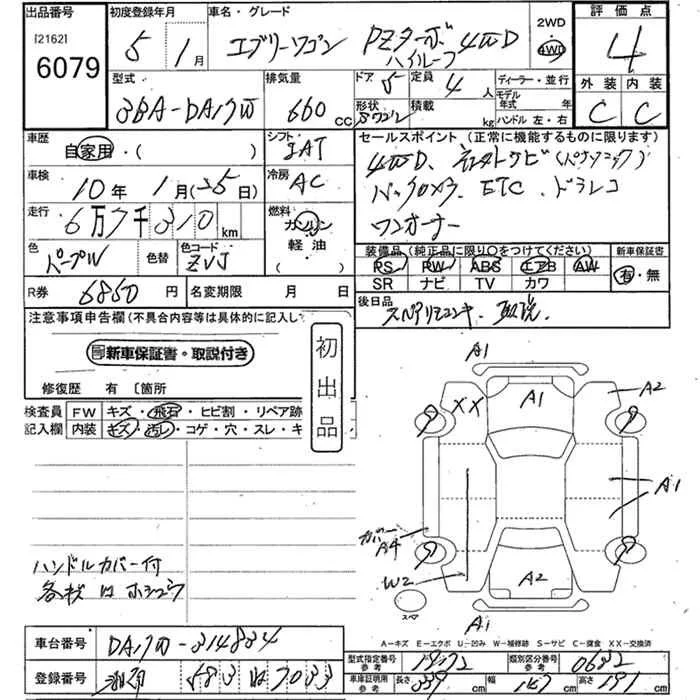 出品番号
[2162]
6079
初度登録年月
5 1月
車名・グレード
エブリーワゴン PZターボ 4WD
ハイルーフ
2WD
4WD
評価点
4
外装 内装
C C
型式
3BA-DA17W
排気量
660 CC
ドア 5
定員 4 人
形状 5ワゴン
積載 kg
ディーラー・並行
モデル
年式 年
ハンドル 左・右
車歴
自家用・( )
シフト
車検
10年 1月(25日)
冷房
AC
走行
6万7千310 km
燃料
ガソリン
軽油
( )
色
パープルW
色替
色コード
ZVJ
セールスポイント (正常に機能するものに限ります)
4WD、社外ナビ(パナソニック)
バックカメラ、ETC、ドラレコ
ワンオーナー
装備品(純正品に限り○をつけてください)
PS PW ABS エアB AW
SR ナビ TV カワ
新車保証書
有・無
R券 6850 円
名変期限 月 日
後日品
スペアリモコンキー、取説
注意事項申告欄(不具合内容等は具体的に記入し
新車保証書・取説付き
初出品
修復歴 有 〔箇所
検査員
記入欄
FW キズ・飛石・ヒビ割・リペア跡
内装 キズ・汚レ・コゲ・穴・スレ・キ
ハンドルカバー付
A1
A1
A2
XX
A1
カバー
A4
W2
A2
A1
スペア
A-キズ E-エクボ U-凹み W-補修跡 S-サビ C-腐食 XX-交換済
車台番号
DA17W-314834
登録番号
583 は 7033
型式指定番号
参考
19172
類別区分番号
参考
0632
車庫証明用
参考
長さ 339 cm
幅 147 cm
高さ 191 cm